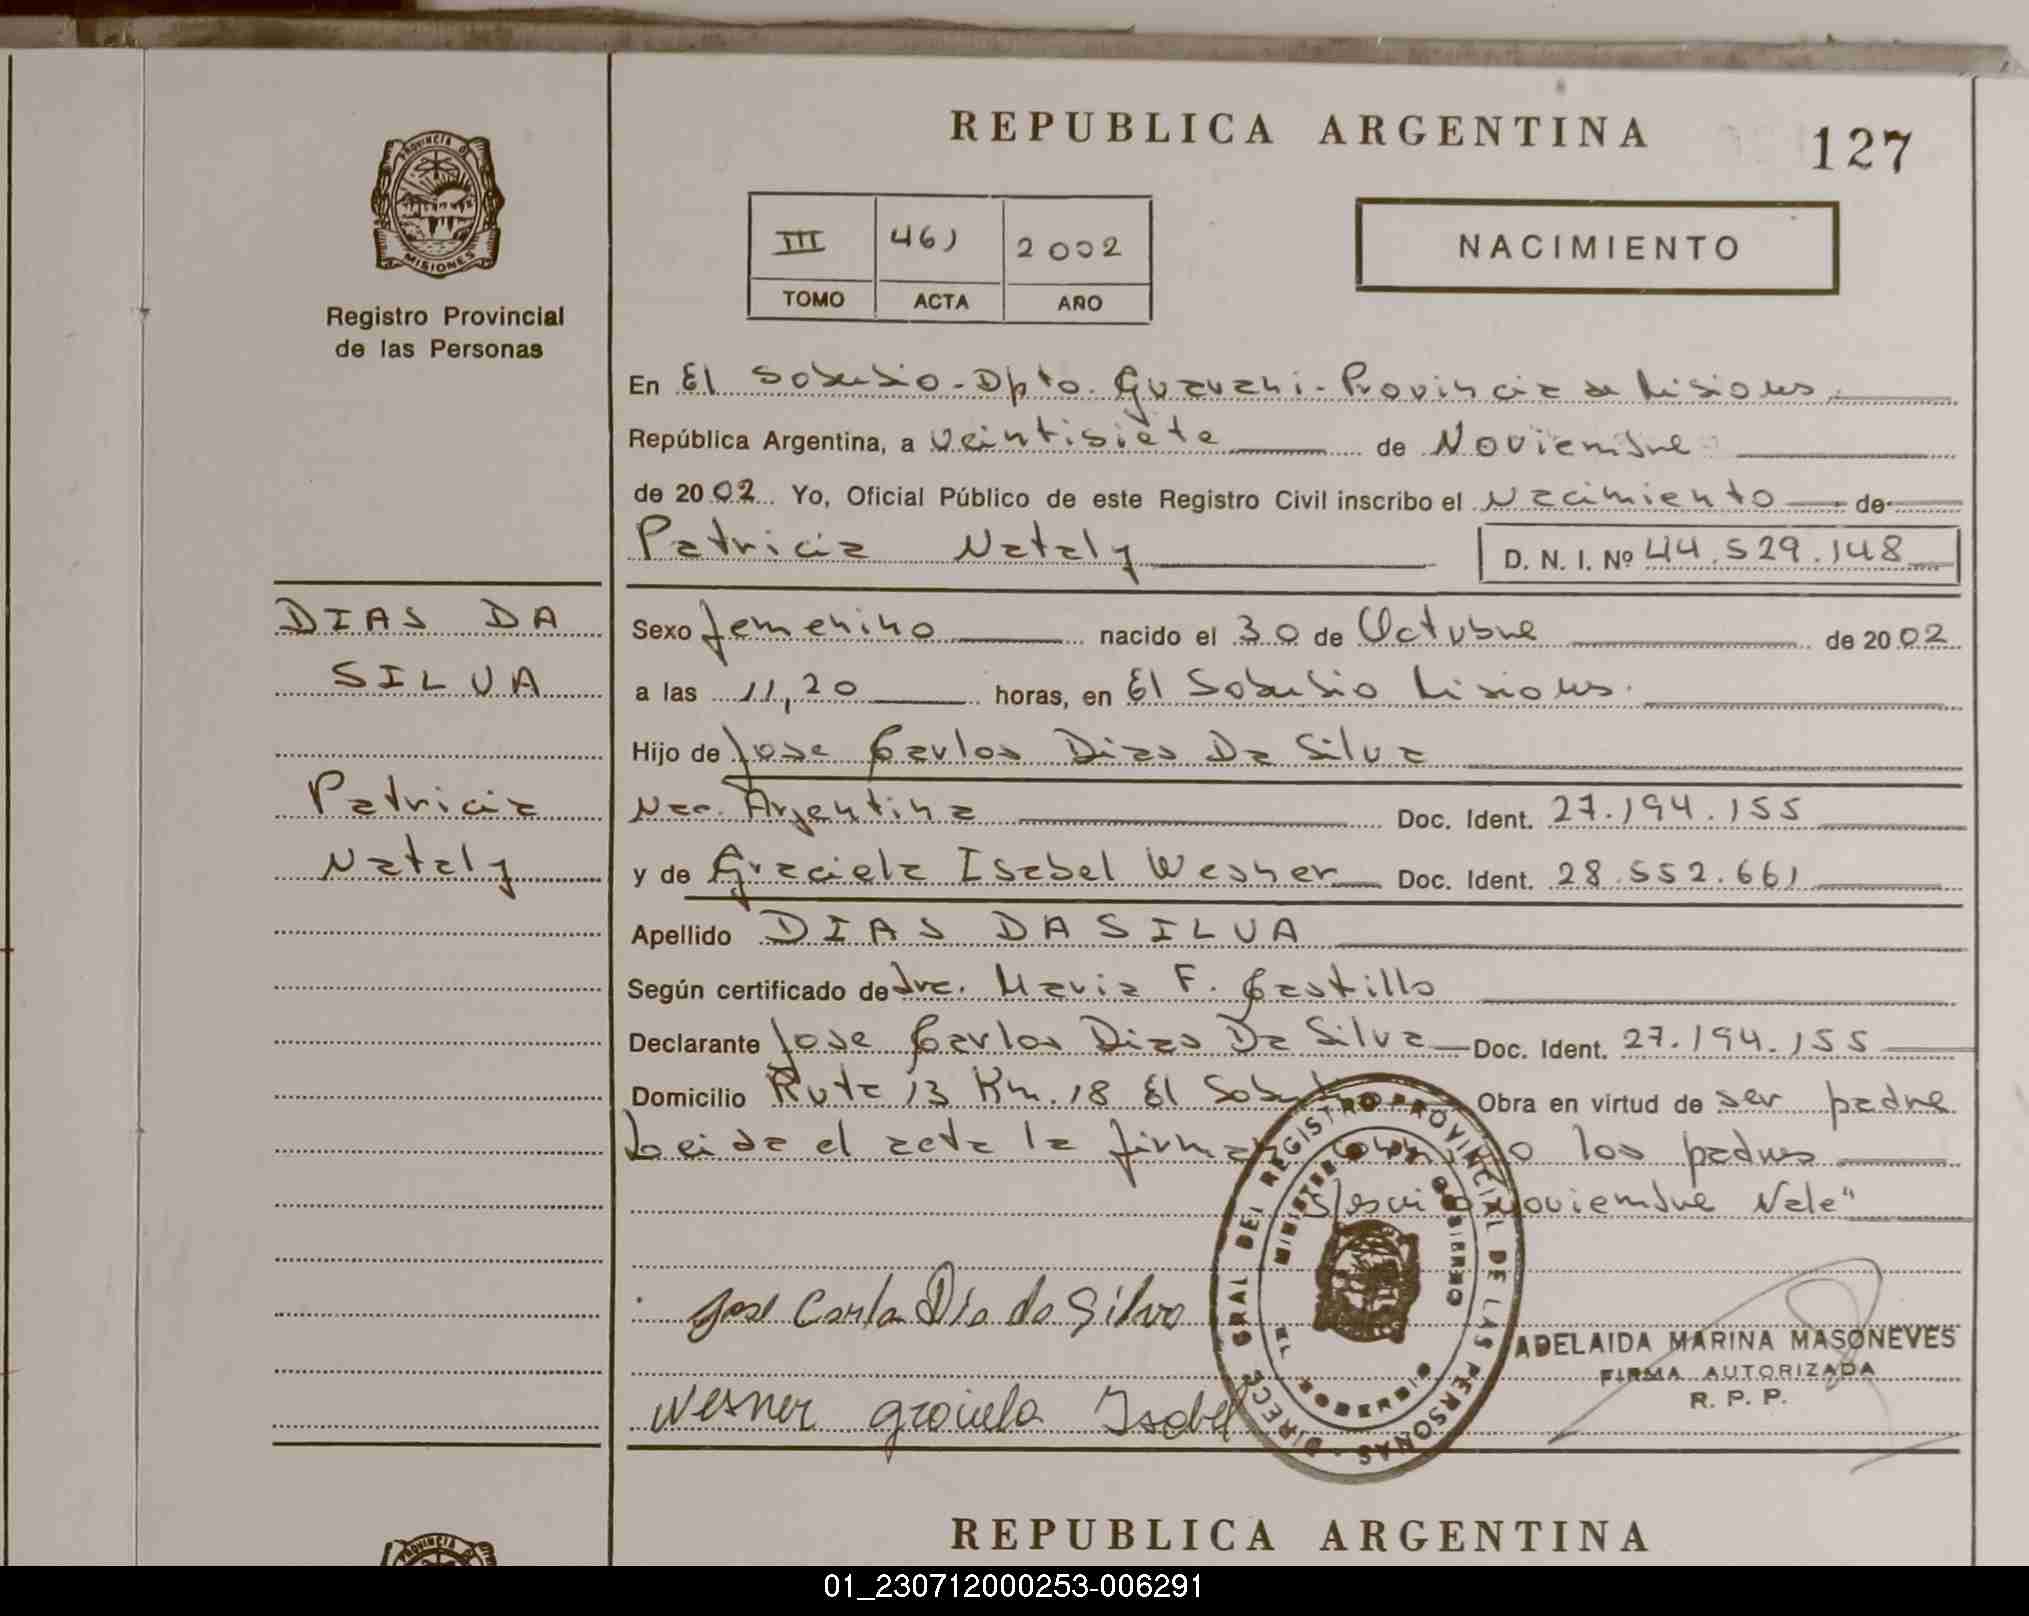 REPUBLICA ARGENTINA
127
PROVINCIA DE
MISIONES
Registro Provincial
de las Personas
III 461 2002
TOMO ACTA AÑO
NACIMIENTO
En El Soberbio - Dpto. Guarani - Provincia de Misiones.
República Argentina, a veintisiete de Noviembre
de 2002 Yo, Oficial Público de este Registro Civil inscribo el Nacimiento de
Patricia Nataly D. N. I. Nº 44.529.148
DIAS DA
SILVA
Patricia
Nataly
Sexo femenino nacido el 30 de Octubre de 2002
a las 11,20 horas, en El Soberbio Misiones.
Hijo de Jose Carlos Dias Da Silva
Nac. Argentina Doc. Ident. 27.194.155
y de Graciela Isabel Wesner Doc. Ident. 28.552.661
Apellido DIAS DA SILVA
Según certificado de dra. Maria F. Castillo
Declarante Jose Carlos Dias Da Silva Doc. Ident. 27.194.155
Domicilio Ruta 13 Km. 18 El Obra en virtud de ser padre
Leida el acta la firman los padres
Noviembre Vale"
Jose Carlo Dia da Silva
Wesner graciela Isabel
DIRECC. GRAL DEL REGISTRO PROVINCIAL DE LAS PERSONAS
ADELAIDA MARINA MASONEVES
FIRMA AUTORIZADA
R. P. P.
REPUBLICA ARGENTINA
PROVINCIA
01_230712000253-006291